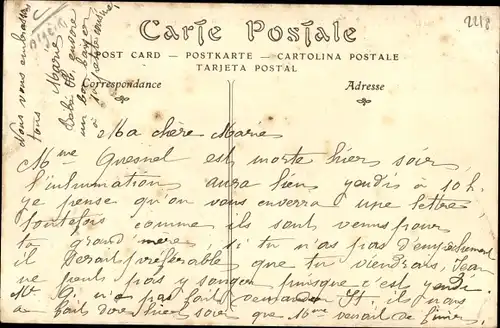 2218
Nous vous embrassons
tous Marie
Bebe
un bon baiser
à
Carte Postale
POST CARD — POSTKARTE — CARTOLINA POSTALE
TARJETA POSTAL
Correspondance
Adresse
Ma chère Marie
Mme Quesnel est morte hier soir
l'inhumation aura lieu jeudi à 10h.
je pense qu'on vous enverra une lettre,
toutefois comme ils sont venus pour
ta grand mère, si tu n'as pas d'empêchement
il serait préférable que tu viendrais, Jean
ne peut pas y songer puisque c'est jeudi.
Mr G. n'a pas fait demander St. il nous
a fait dire hier soir que Mme venait de